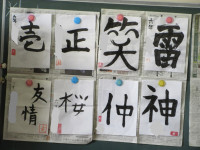 壱 正 笑 雷
友情 桜 仲 神